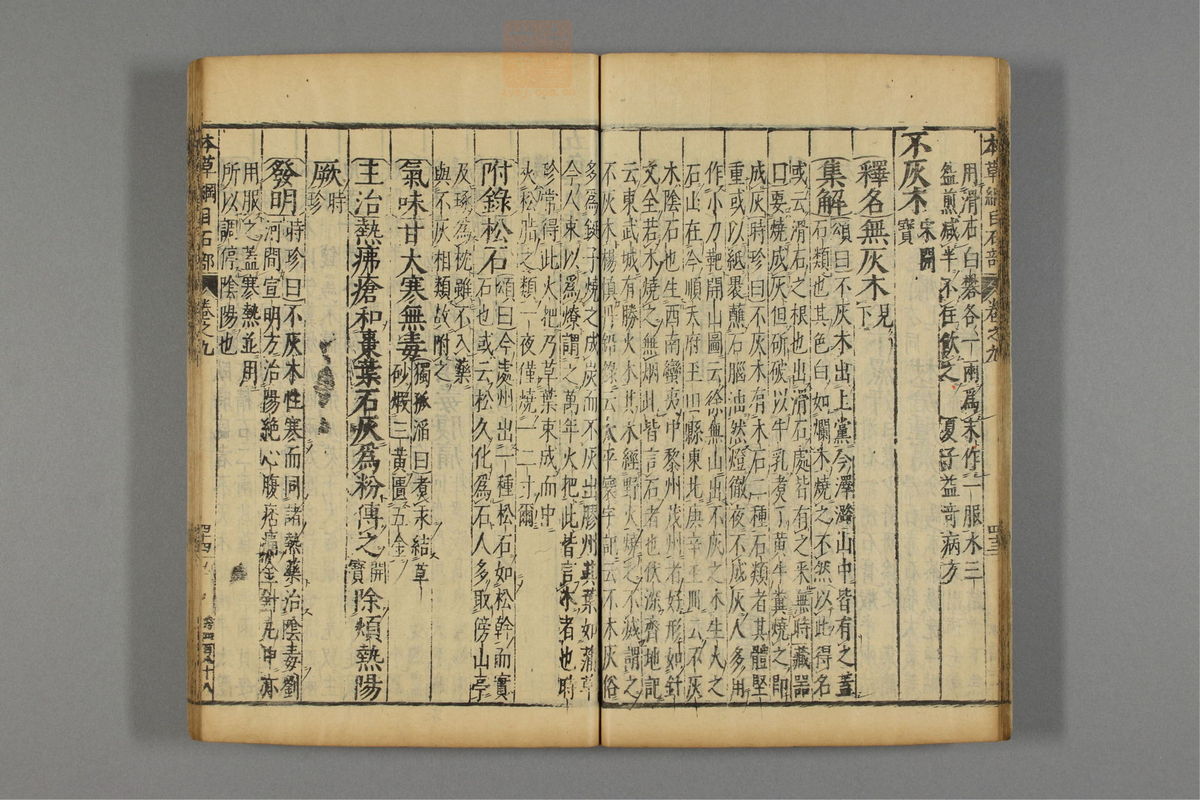 本草綱目石部 卷之九 四十三
用滑石白礬各一兩爲末作一服水三
盌煎減半不住飲之 夏子益奇病方
不灰木 宋開
寶
釋名無灰木 見
下
集解 頌曰不灰木出上黨今澤潞山中皆有之蓋
石類也其色白如爛木燒之不然以此得名
或云滑石之根也出滑石處皆有之采無時藏器
曰要燒成灰但斫破以牛乳煮了黃牛糞燒之即
成灰時珍曰不灰木有木石二種石類者其體堅
重或以紙裹蘸石腦油然燈徹夜不成灰人多用
作小刀靶開山圖云徐無山出不灰之木生火之
石山在今順天府玉田縣東北庚辛玉冊云不灰
木陰石也生西南蠻夷中黎州茂州者好形如針
文全若木燒之無烟此皆言石者也伏深齊地記
云東武城有勝火木其木經野火燒之不滅謂之
不灰木楊慎丹鉛錄云太平寰宇記云不木灰俗
多爲鋌子燒之成炭而不灰出膠州其葉如蒲草
今人束以爲燎謂之萬年火把此皆言木者也時
珍常得此火把乃草葉束成而中
夾松脂之類一夜僅燒一二寸爾
附錄松石 頌曰今處州出一種松石如松幹而實
石也或云松久化爲石人多取傍山亭
及琢爲枕雖不入藥
與不灰相類故附之
氣味甘大寒無毒 獨孤滔曰煮汞結草
砂煆三黃匱五金
主治熱疿瘡和棗葉石灰爲粉傅之 開
寶 除煩熱陽
厥 時
珍
發明 時珍曰不灰木性寒而同諸熱藥治陰毒劉
河間宣明方治陽絶心腹痞痛金針丸中亦
用服之蓋寒熱並用
所以調停陰陽也
本草綱目石部 卷之九 四十四